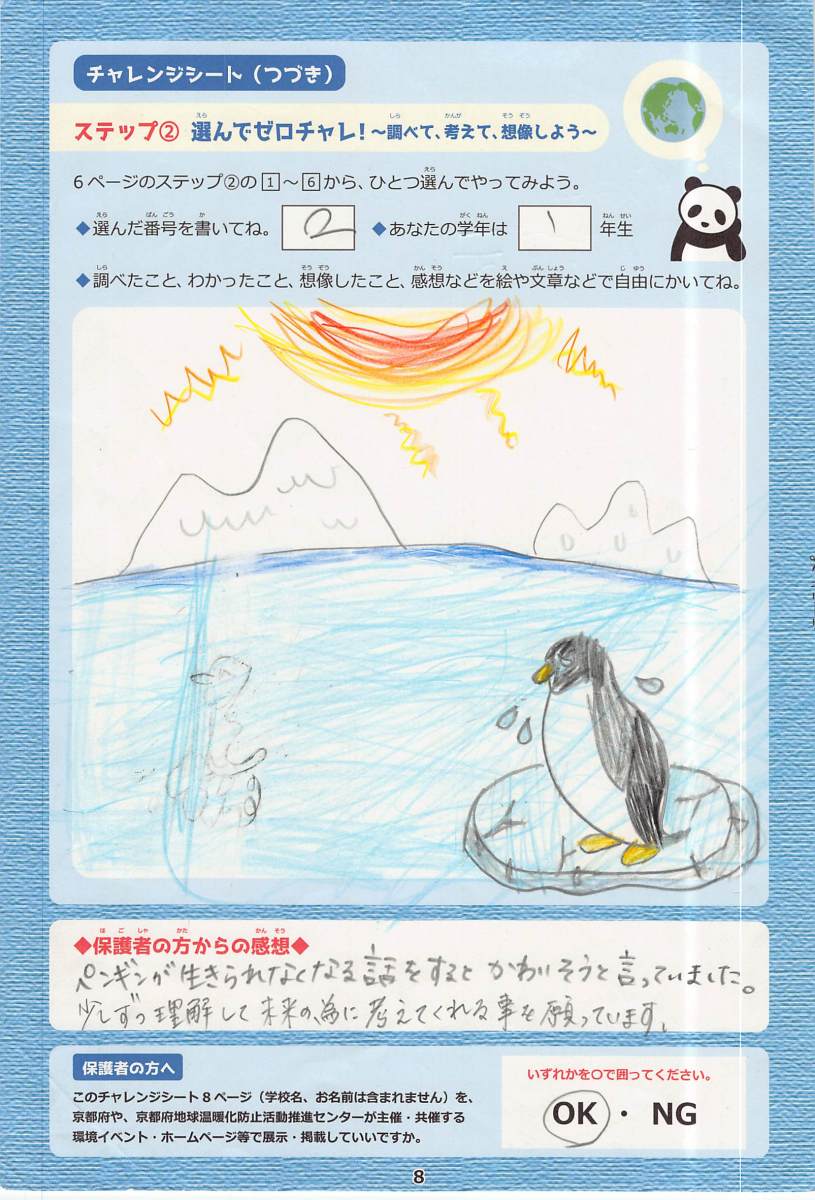 チャレンジシート(つづき)
ステップ② 選んでゼロチャレ!~調べて、考えて、想像しよう~
6ページのステップ②の1~6から、ひとつ選んでやってみよう。
◆選んだ番号を書いてね。 2 ◆あなたの学年は 1 年生
◆調べたこと、わかったこと、想像したこと、感想などを絵や文章などで自由にかいてね。
◆保護者の方からの感想◆
ペンギンが生きられなくなる話をすると かわいそうと言っていました。
少しずつ理解して未来の為に考えてくれる事を願っています。
保護者の方へ
このチャレンジシート8ページ(学校名、お名前は含まれません)を、
京都府や、京都府地球温暖化防止活動推進センターが主催・共催する
環境イベント・ホームページ等で展示・掲載していいですか。
いずれかを○で囲ってください。
OK ・ NG
8